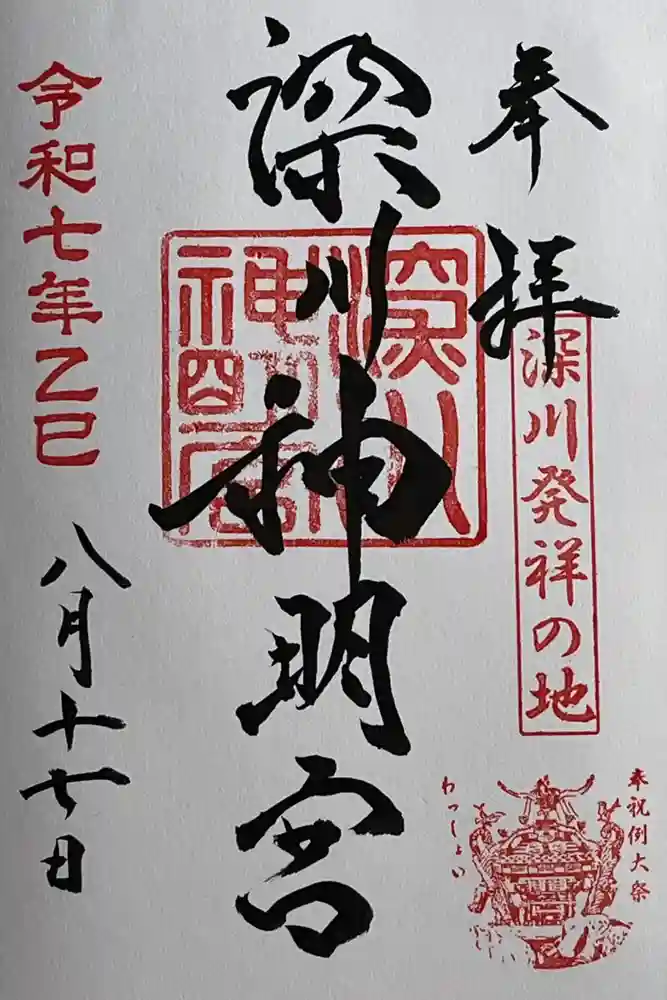 奉拝
深川発祥の地
奉祝例大祭
わっしょい
深川神明宮
深川神明宮
令和七年乙巳
八月十七日